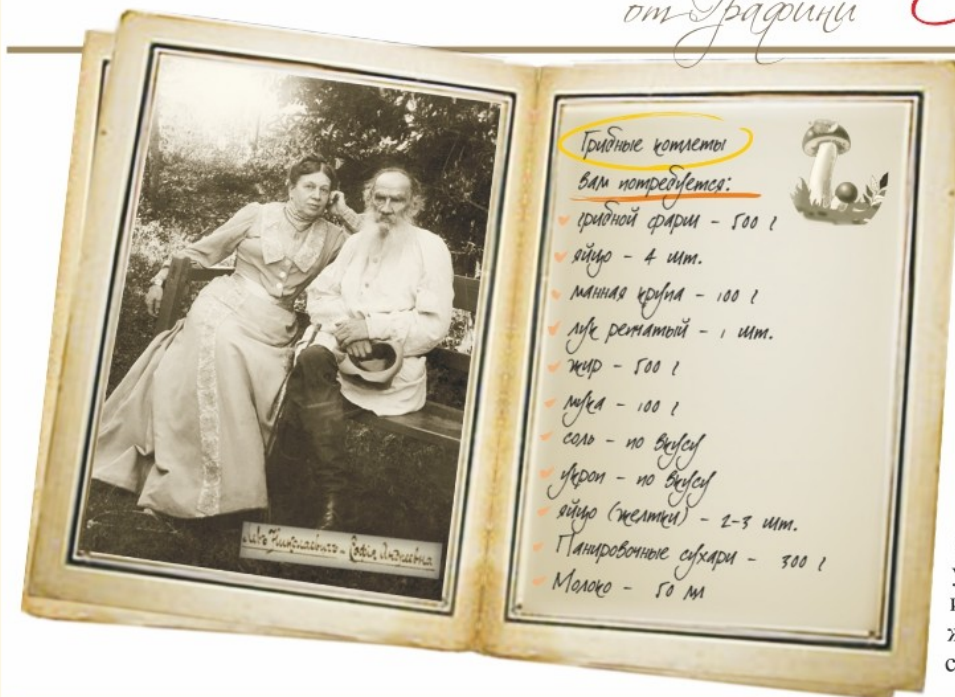 от Графини
Левъ Николаевичъ и Софья Андреевна
Грибные котлеты
вам потребуется:
грибной фарш - 500 г
яйцо - 4 шт.
манная крупа - 100 г
лук репчатый - 1 шт.
жир - 500 г
мука - 100 г
соль - по вкусу
укроп - по вкусу
яйцо (желтки) - 2-3 шт.
Панировочные сухари - 300 г
Молоко - 50 мл